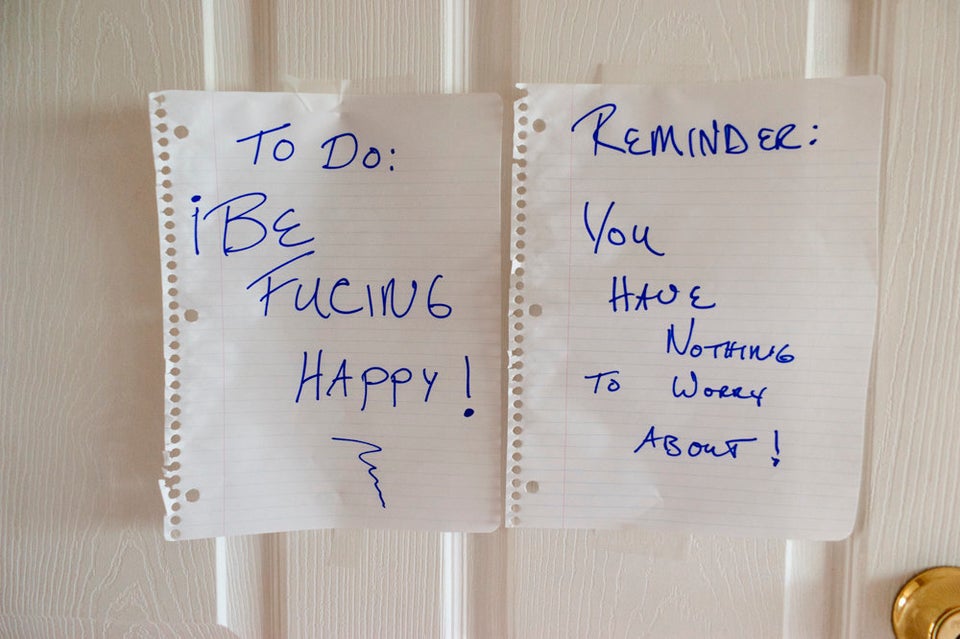 To Do:
¡BE
FUCING
HAPPY!
REMINDER:
You
HAVE
NOTHING
TO WORRY
ABOUT!